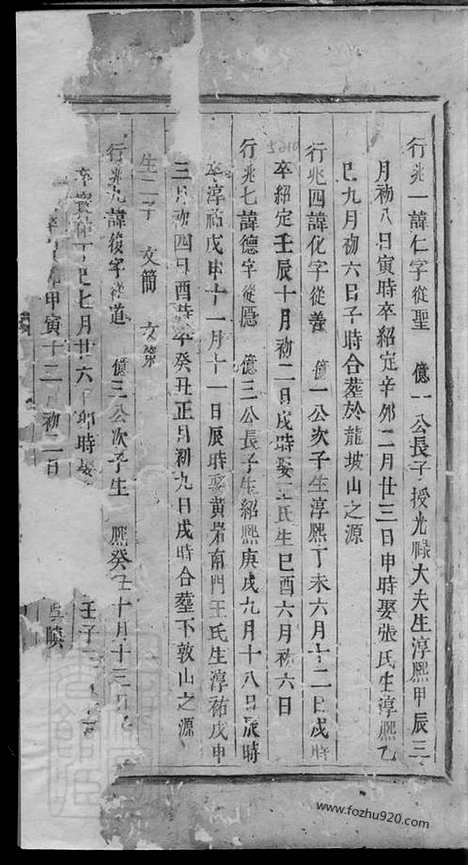 行兆一諱仁字從聖 億一公長子授光祿大夫生淳熙甲辰三
月初八日寅時卒紹定辛卯二月廿三日申時娶張氏生淳熙乙
巳九月初六日子時合葬於龍坡山之源
行兆四諱化字從善 億一公次子生淳熙丁未六月十二日戌時
卒紹定壬辰十月初二日戌時娶王氏生巳酉六月初六日
5610
行兆七諱德字從隱 億三公長子生紹熙庚戌九月十八日辰時
卒淳祐戊申十一月十一日辰時娶黃岩南門王氏生淳祐戊申
三月初四日酉時卒癸丑正月初九日戌時合葬下敦山之源
生二子 文簡 文
行兆九諱復字道 億三公次子生 熙癸丑十月十三日
卒寶祐丁巳七月廿六日卯時娶 壬子
甲寅十二月初二日 吳暎
www.fozhu920.com